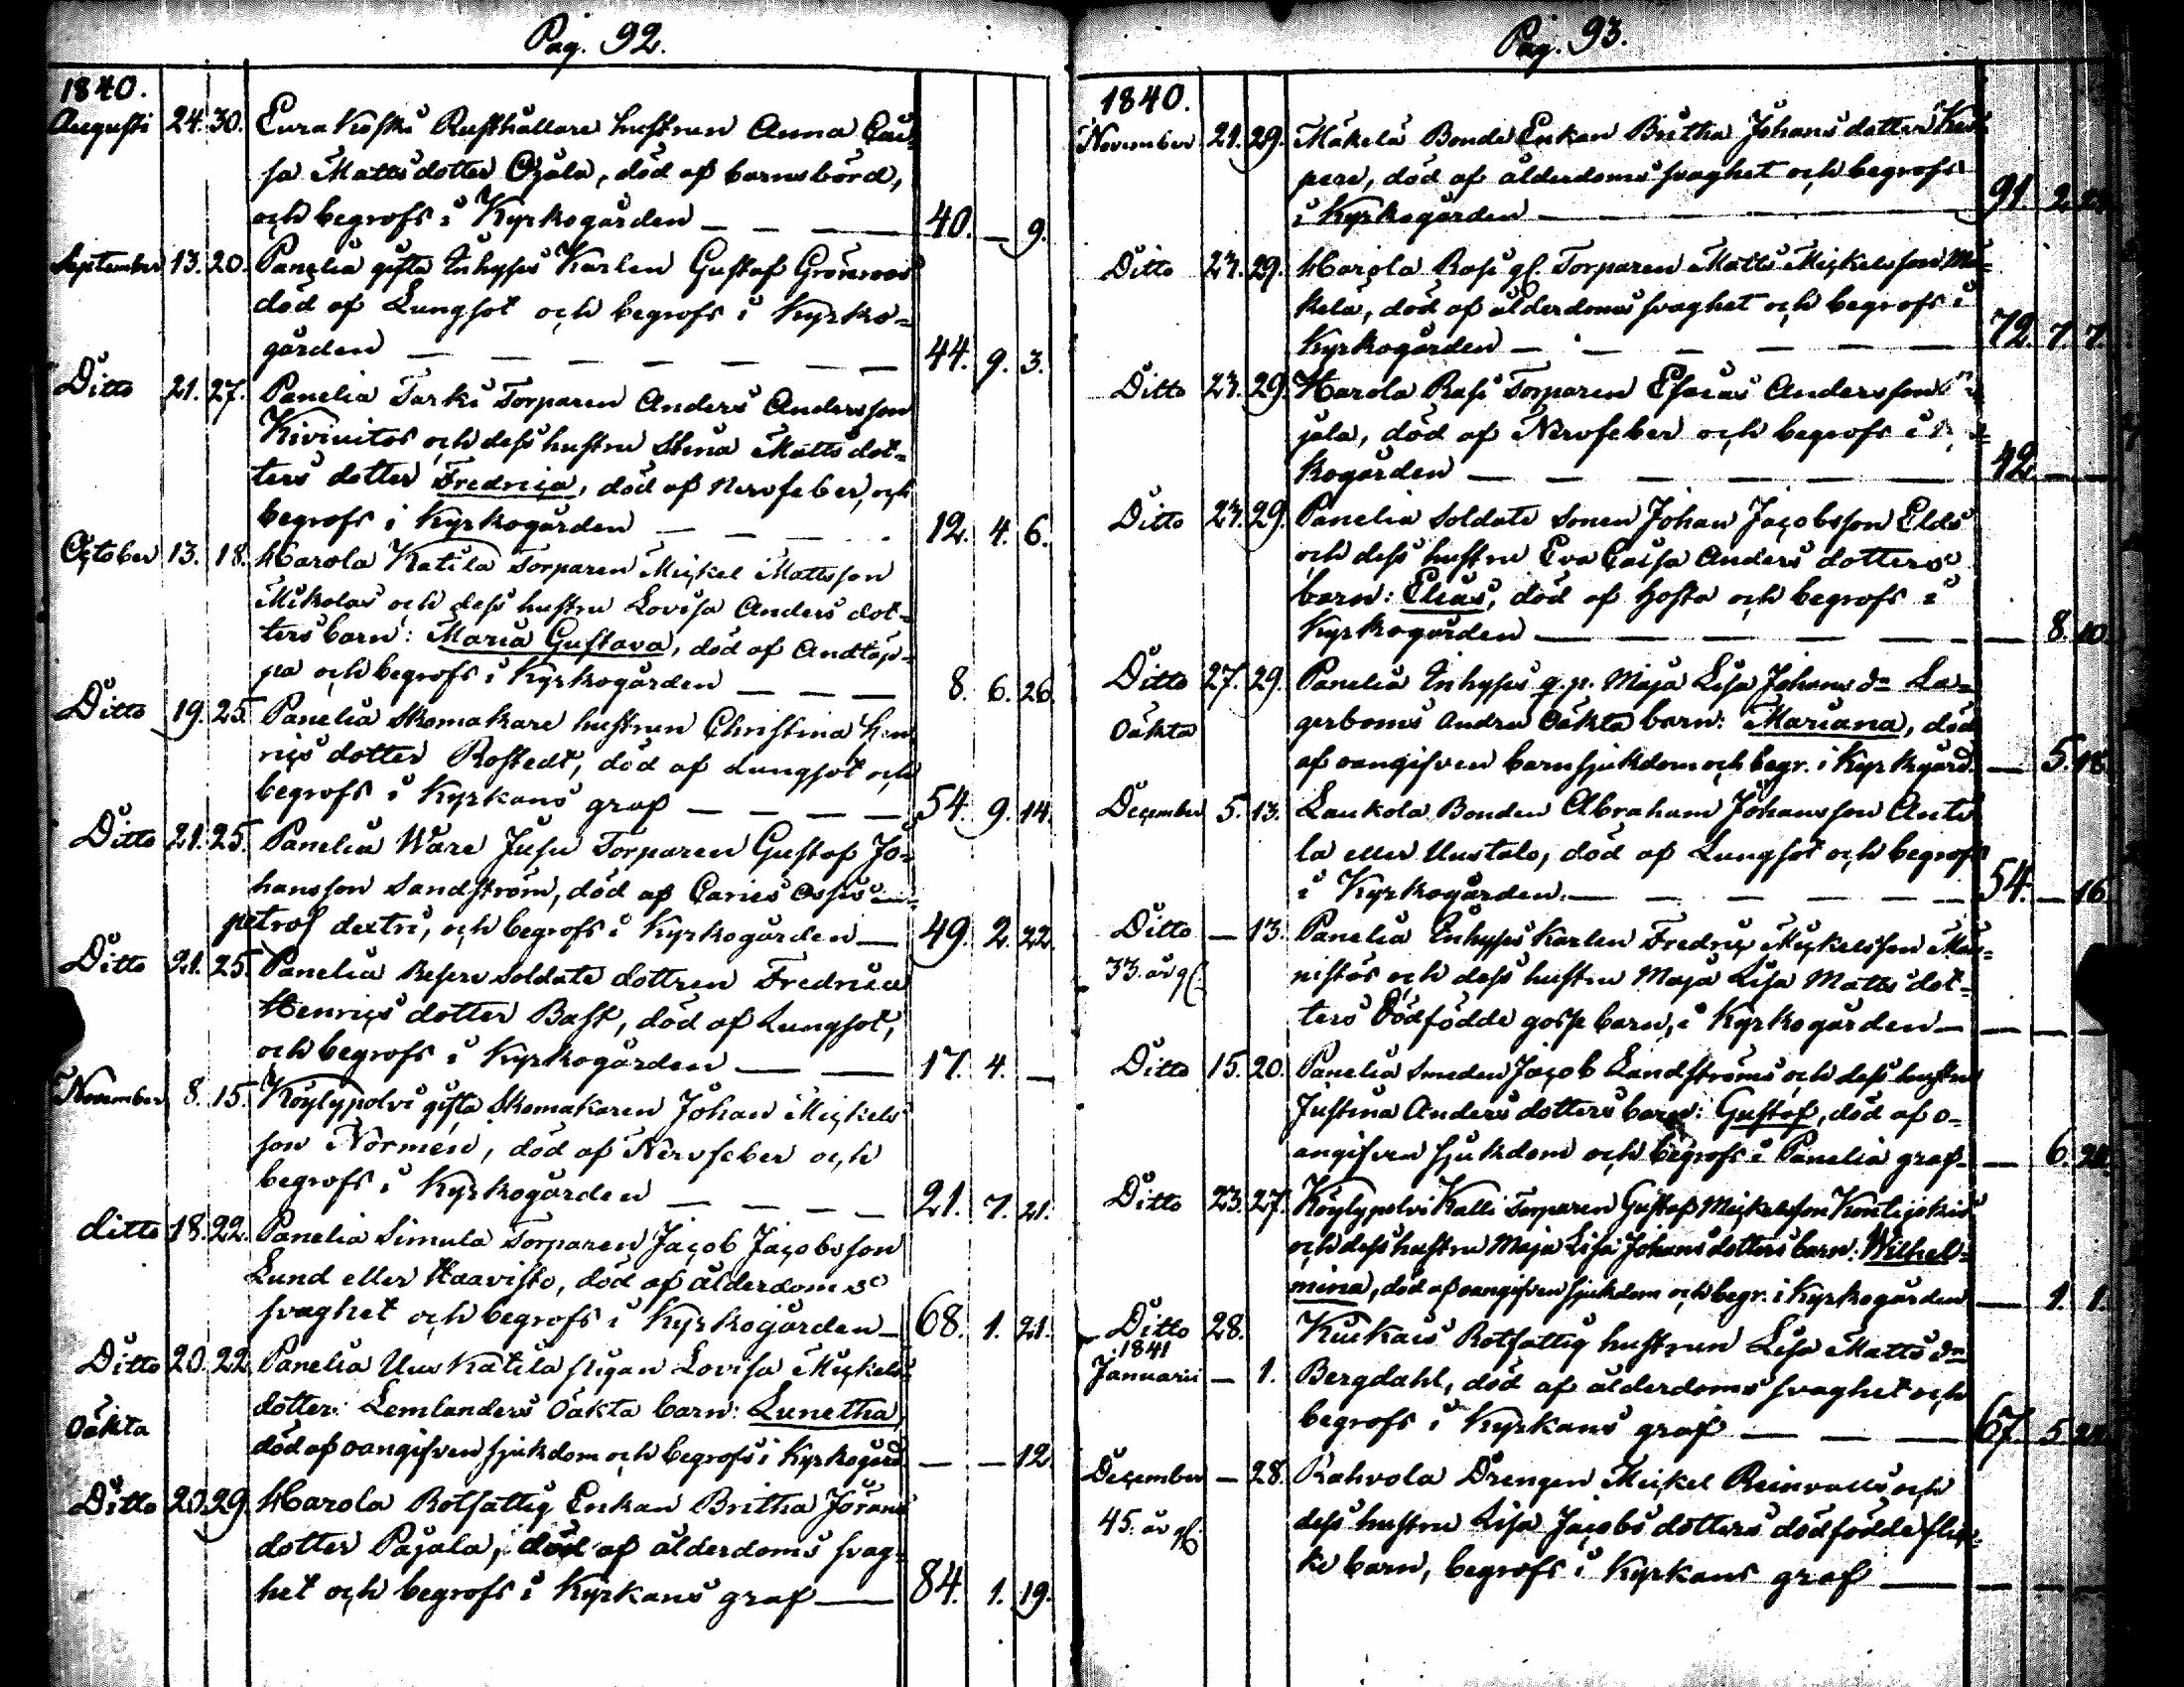 Pag. 92.
1840.
Augusti 24. 30. Eura Koski Rusthållare hustrun Anna Cai=
sa Mattsdotter Ojala, död af barnsbörd,
och begrofs i Kyrkogården — 40. — 9.
September 13. 20. Panelia gifta Inhyses Karlen Gustaf Grönroos
död af Lungsot och begrofs i Kyrko=
gården — 44. 9. 3.
Ditto 21. 27. Panelia Tarki Torparen Anders Andersson
Kiviniitos och dess hustru Stina Matts dot=
ters dotter Fredrica, död af Nervfeber, och
begrofs i Kyrkogården — 12. 4. 6.
October 13. 18. Harola Katila Torparen Mickel Mattsson
Mikolas och dess hustru Lovisa Anders dot=
ters barn: Maria Gustava, död af Andtäp=
pa och begrofs i Kyrkogården — 8. 6. 26.
Ditto 19. 25. Panelia Skomakare hustrun Christina Hen
rics dotter Rostedt, död af Lungsot och
begrofs i Kyrkans graf — 54. 9. 14.
Ditto 21. 25. Panelia Ware Jusu Torparen Gustaf Jo=
hansson Sandström, död af Caries Ossis
petros dextri, och begrofs i Kyrkogården — 49. 2. 22.
Ditto 21. 25. Panelia Reserve Soldats dottren Fredrica
Henrics dotter Bast, död af Lungsot,
och begrofs i Kyrkogården — 17. 4. —
November 8. 15. Köylypolvi gifta Skomakaren Johan Mickels
son Normén, död af Nervfeber och
begrofs i Kyrkogården — 21. 7. 21.
ditto 18. 22. Panelia Simula Torparen Jacob Jacobsson
Lund eller Haavisto, död af ålderdoms
svaghet och begrofs i Kyrkogården — 68. 1. 21.
Ditto 20. 22. Panelia Uus Katila pigan Lovisa Mickels
dotter Lemlanders Oäkta barn: Lunetha,
Oäkta
död af oangifven sjukdom och begrofs i Kyrkogård — — 12.
Ditto 20. 29. Harola Rotfattig Enkan Britha Jörans
dotter Pajala, död af ålderdoms svag=
het och begrofs i Kyrkans graf — 84. 1. 19.
Pag. 93.
1840.
November 21. 29. Mäkelä Bonde Enkan Britha Johans dotter
pere, död af ålderdoms svaghet och begrofs
i Kyrkogården — 91. 2.
Ditto 23. 29. Harola Rasi gl. Torparen Matts Mickelsson Mä=
kelä, död af ålderdoms svaghet och begrofs i
Kyrkogården — 72. 7. 7.
Ditto 23. 29. Harola Rasi Torparen Esaias Andersson
jala, död af Nervfeber och begrofs i
kogården — 42. — —
Ditto 23. 29. Panelia Soldats Sonen Johan Jacobsson Elds
och dess hustru Eva Caisa Anders dotters
barn: Elias, död af hosta och begrofs i
Kyrkogården — — 8. 10.
Ditto 27. 29. Panelia Inhyses q. p. Maja Lisa Johans dr La=
Oäkta gerboms andra Oäkta barn: Mariana, död
af oangifven barnsjukdom och begr. i Kyrkgård. — 5. 18.
December 5. 13. Laukola Bonden Abraham Johansson Anti
la eller Uustalo, död af Lungsot och begrofs
i Kyrkogården. — 54. — 16.
Ditto — 13. Panelia Inhyses Karlen Fredric Mickelsson Man=
33. år gl. nistos och dess hustru Maja Lisa Matts dot=
ters Dödfödde gosse barn, i Kyrkogården — — — —
Ditto 15. 20. Panelia Smeden Jacob Landströms och dess hustru
Justina Anders dotters barn: Gustaf, död af o=
angifven sjukdom och begrofs i Panelia graf. — 6.
Ditto 23. 27. Köylypolvi Kalli Torparen Gustaf Mickelsson Kontijokis
och dess hustru Maja Lisa Johans dotters barn: Wilhel=
mina, död af oangifven sjukdom och begr. i Kyrkogården — 1. 1.
Ditto 28. Kiukais Rotfattig hustrun Lisa Matts dr
1841
Januarii — 1. Bergdahl, död af ålderdoms svaghet och
begrofs i Kyrkans graf — 67. 5.
December — 28. Rahvola Drengen Mickel Reinvalls och
45. år gl. dess hustru Lisa Jacobs dotters dödfödde flic=
ke barn, begrofs i Kyrkans graf — — — —